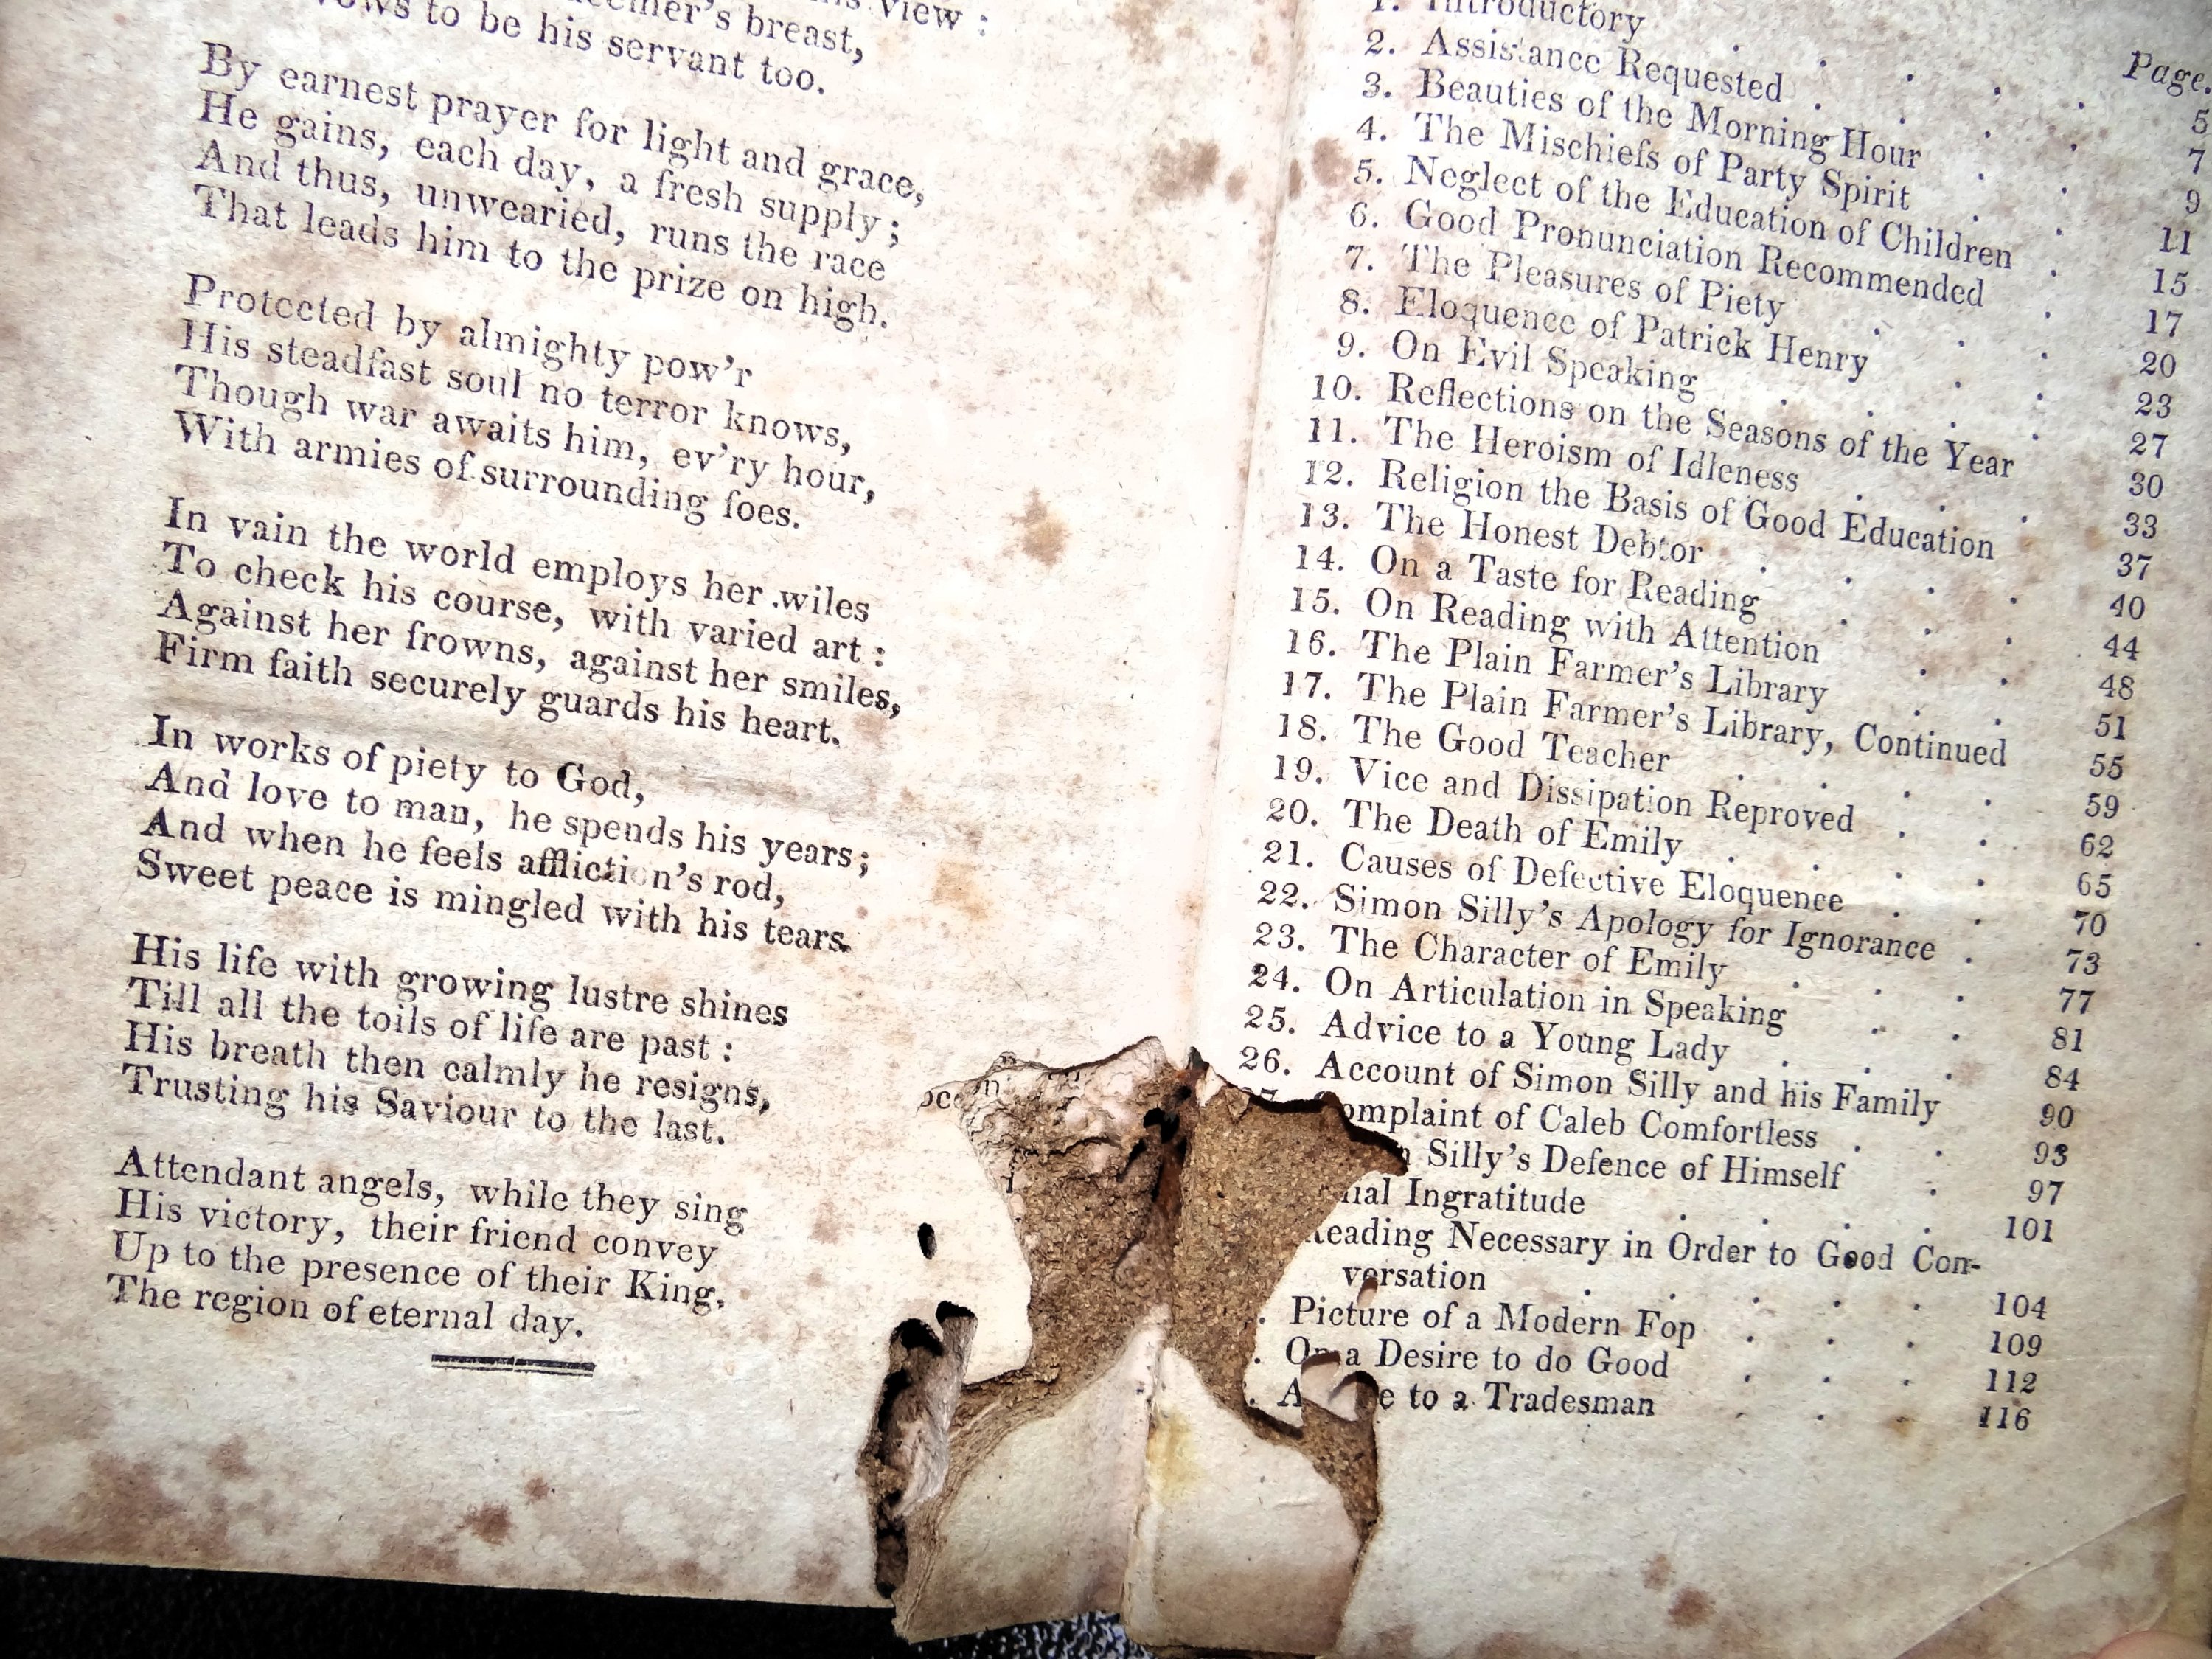 view :
breast,
to be his servant too.
By earnest prayer for light and grace,
He gains, each day, a fresh supply;
And thus, unwearied, runs the race
That leads him to the prize on high.
Protected by almighty pow'r
His steadfast soul no terror knows,
Though war awaits him, ev'ry hour,
With armies of surrounding foes.
In vain the world employs her wiles
To check his course, with varied art :
Against her frowns, against her smiles,
Firm faith securely guards his heart.
In works of piety to God,
And love to man, he spends his years;
And when he feels affliction's rod,
Sweet peace is mingled with his tears.
His life with growing lustre shines
Till all the toils of life are past :
His breath then calmly he resigns,
Trusting his Saviour to the last.
Attendant angels, while they sing
His victory, their friend convey
Up to the presence of their King,
The region of eternal day.
Page.
1. Introductory . . . . 5
2. Assistance Requested . . . . 7
3. Beauties of the Morning Hour . . 9
4. The Mischiefs of Party Spirit . . 11
5. Neglect of the Education of Children . 15
6. Good Pronunciation Recommended . 17
7. The Pleasures of Piety . . . 20
8. Eloquence of Patrick Henry . . 23
9. On Evil Speaking . . . . 27
10. Reflections on the Seasons of the Year 30
11. The Heroism of Idleness . . . 33
12. Religion the Basis of Good Education 37
13. The Honest Debtor . . . . 40
14. On a Taste for Reading . . . 44
15. On Reading with Attention . . 48
16. The Plain Farmer's Library . . 51
17. The Plain Farmer's Library, Continued 55
18. The Good Teacher . . . . 59
19. Vice and Dissipation Reproved . . 62
20. The Death of Emily . . . . 65
21. Causes of Defective Eloquence . . 70
22. Simon Silly's Apology for Ignorance . 73
23. The Character of Emily . . . 77
24. On Articulation in Speaking . . 81
25. Advice to a Young Lady . . . 84
26. Account of Simon Silly and his Family 90
omplaint of Caleb Comfortless . . 93
Silly's Defence of Himself . 97
Ingratitude . . . . 101
eading Necessary in Order to Good Con-
versation . . . . . 104
Picture of a Modern Fop . . . 109
On a Desire to do Good . . . 112
to a Tradesman . . 116